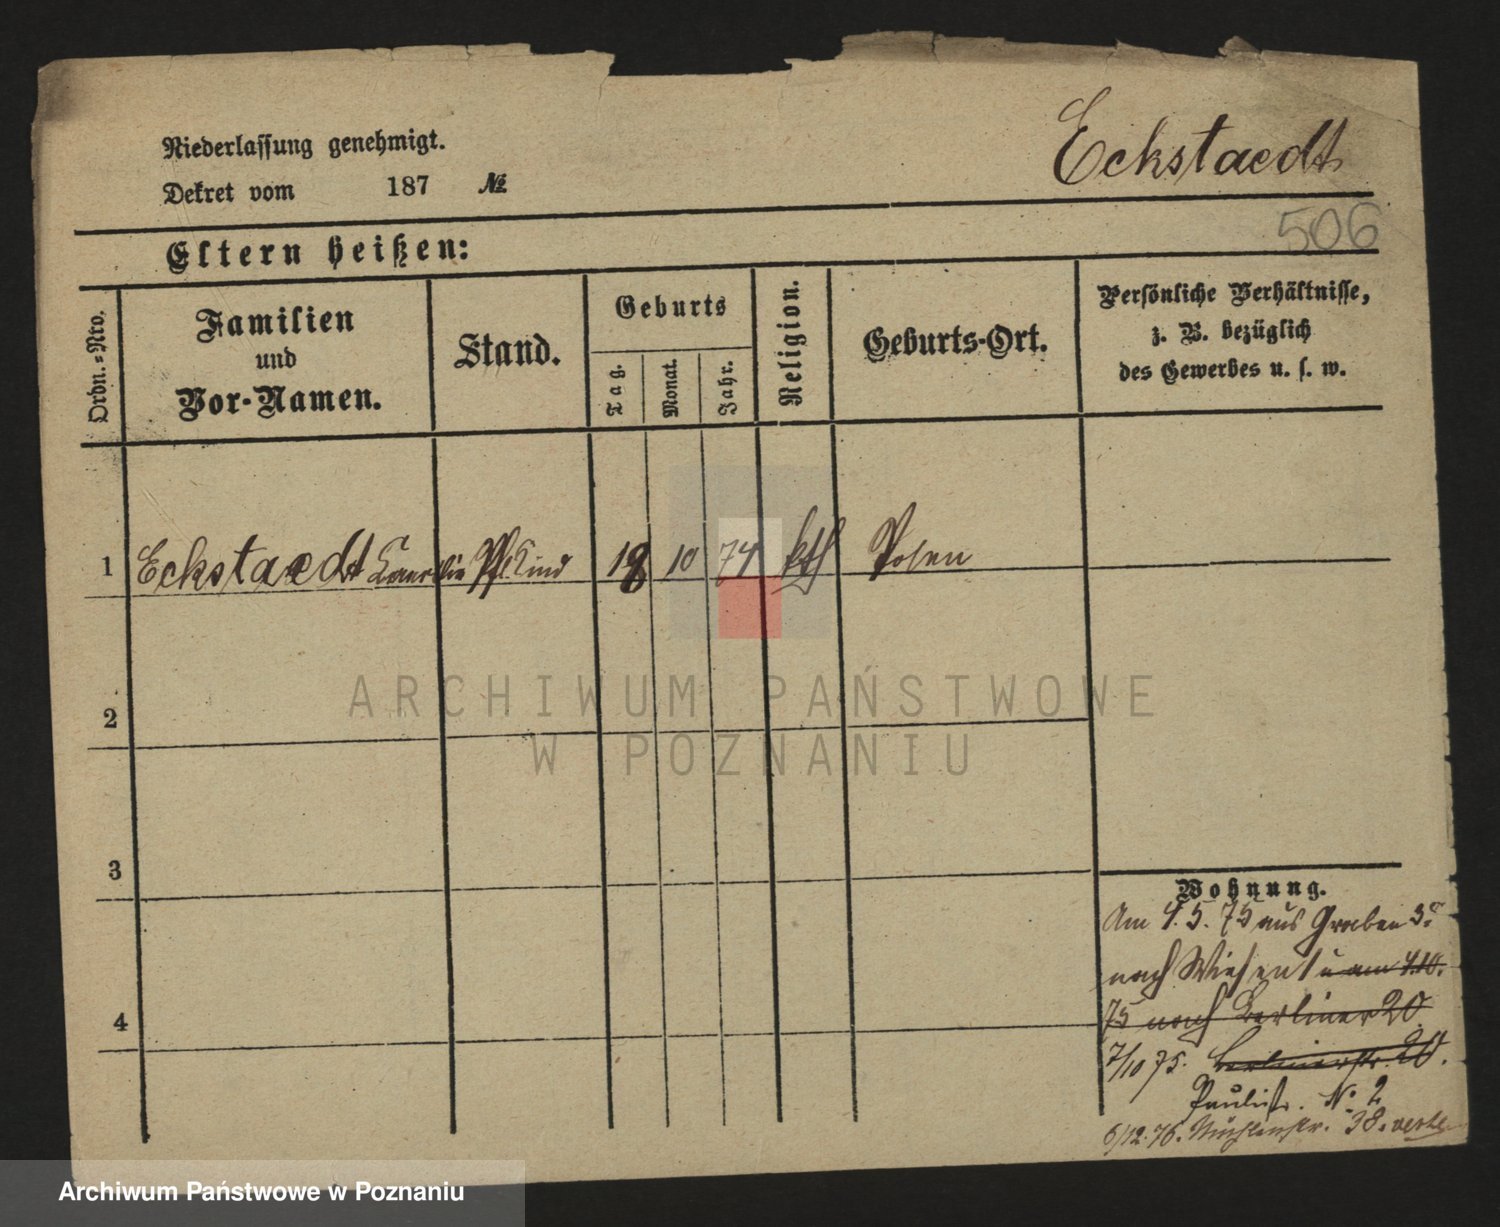 Niederlassung genehmigt.
Dekret vom 187 №
Eckstaedt
506
Eltern heißen:
Ordn.-Nro.
Familien
und
Vor-Namen.
Stand.
Geburts
Tag.
Monat.
Jahr.
Religion.
Geburts-Ort.
Persönliche Verhältnisse,
z. B. bezüglich
des Gewerbes u. s. w.
1 Eckstaedt Pfl. Kind 18 10 74 kth Posen
2
3
4
ARCHIWUM PAŃSTWOWE
W POZNANIU
Wohnung.
Am 4.5.75 aus Graben 3
nach Wiesen 1 u am 4.10.
75 nach Berliner 20
7/10 75. Berlinerstr. 20.
Paulistr. No 2
6/12.76. Mühlenstr. 38.
Archiwum Państwowe w Poznaniu